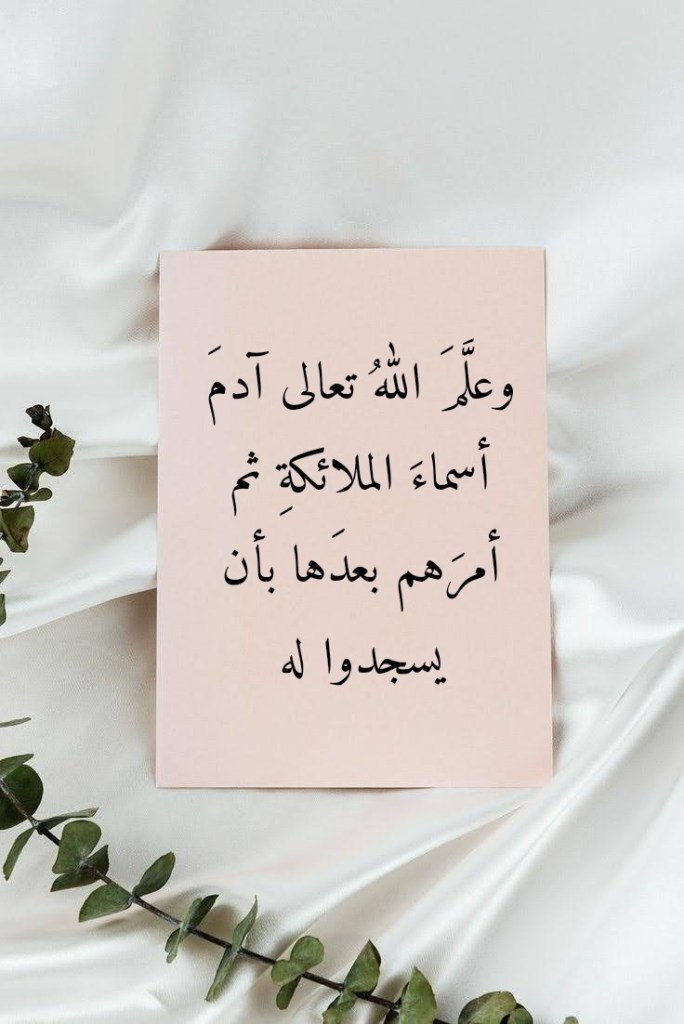 وعلَّمَ اللهُ تعالى آدمَ
أسماءَ الملائكةِ ثم
أمرَهم بعدَها بأن
يسجدوا له